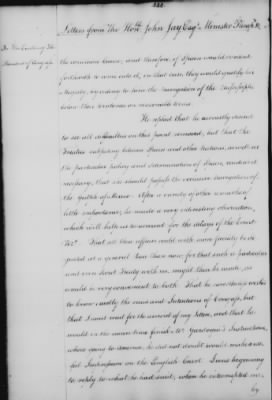 Letters from The Honbl. John Jay Esqr. Minister
the common cause, and therefore if Spain would consent
forthwith to come into it, in that case, they would gratify his
Majesty, by ceding to him the navigation of the Mississippi
below their Territories on reasonable terms.
He replied that he ardently wished
to see all difficulties on that point removed, but that the
Treaties subsisting between Spain and other Nations, as well as
the particular policy and determination of Spain, rendered it
necessary, that she should possess the exclusive navigation of
the Gulph of Mexico. After a variety of other remarks of
little importance, he made a very interesting observation,
which will help us to account for the delays of the Court
Viz. That all these affairs could with more facility be ad-
justed at a general Peace than now for that such a particular
and even secret Treaty with us, might then be made, as
would be very convenient to both. That he nevertheless wished
to know exactly the views and Intentions of Congress, but
that I must wait for the answer of my letter, and that he
would in the mean time finish Mr. Gardoqui's Instructions,
whose going to America, he did not doubt would make a use-
ful Impression on the English Court. I was beginning
to reply to what he had said, when he interrupted me,
by